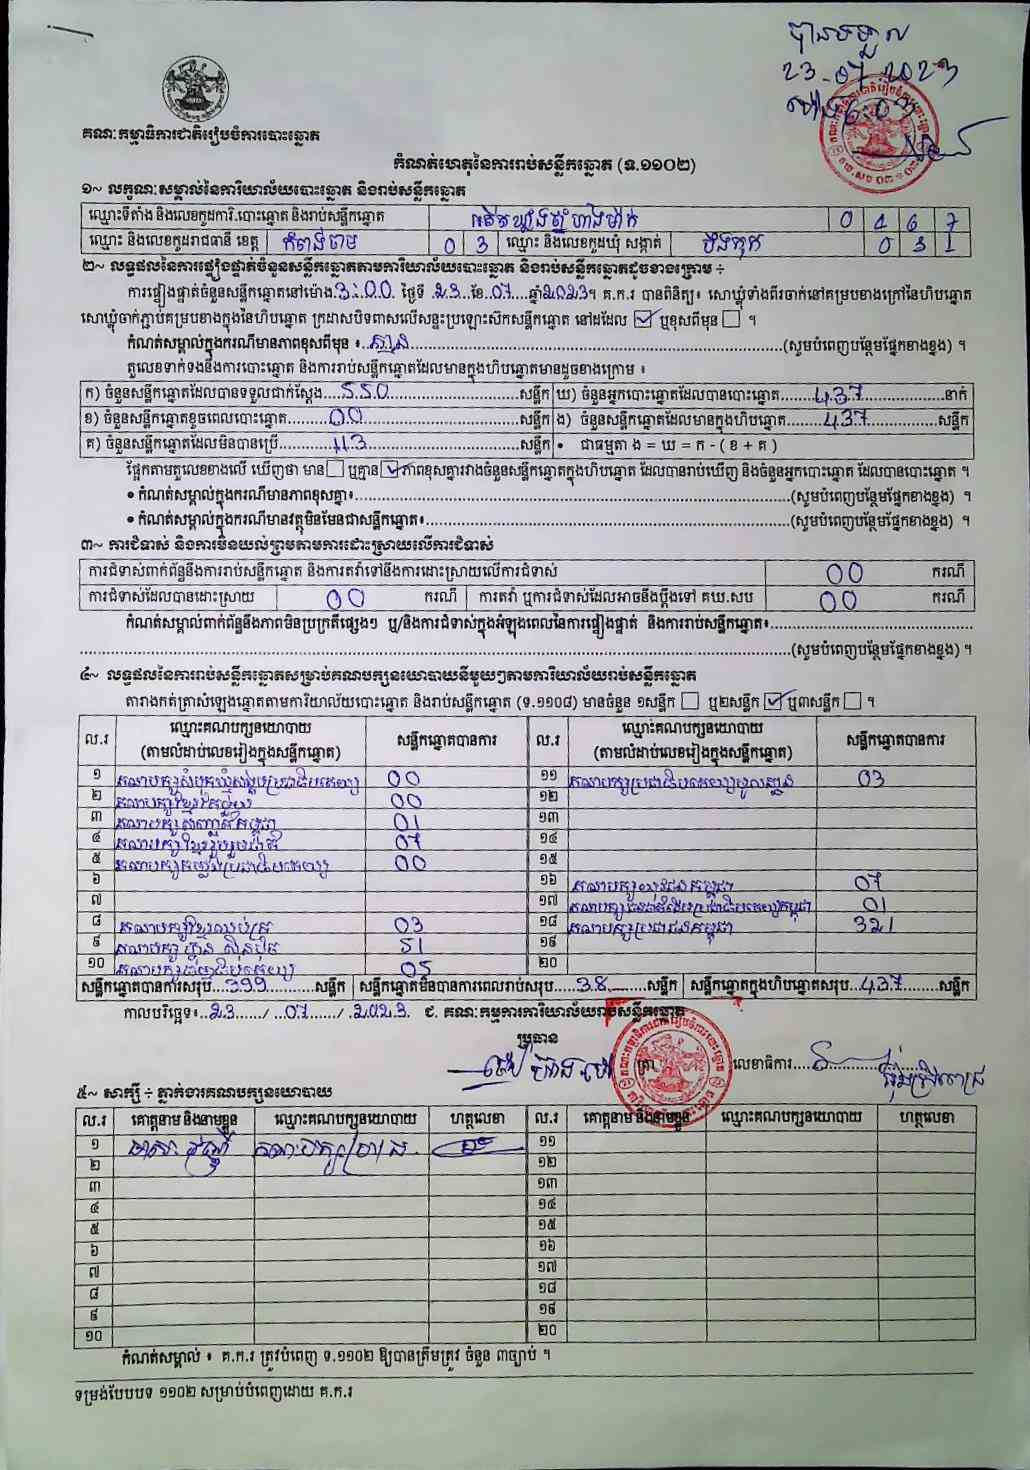 បានទទួល
23-07-2023
គណៈកម្មាធិការជាតិរៀបចំការបោះឆ្នោត
កំណត់ហេតុនៃការរាប់សន្លឹកឆ្នោត (ទ.១១០២)
១~ លក្ខណៈសម្គាល់នៃការិយាល័យបោះឆ្នោត និងរាប់សន្លឹកឆ្នោត
ឈ្មោះទីតាំង និងលេខកូដការិ.បោះឆ្នោត និងរាប់សន្លឹកឆ្នោត 0467
ឈ្មោះ និងលេខកូដរាជធានី ខេត្ត កំពង់ចាម 03 ឈ្មោះ និងលេខកូដឃុំ សង្កាត់ បឹងកុក 031
២~ លទ្ធផលនៃការផ្ទៀងផ្ទាត់ចំនួនសន្លឹកឆ្នោតតាមការិយាល័យបោះឆ្នោត និងរាប់សន្លឹកឆ្នោតដូចខាងក្រោម ÷
ការផ្ទៀងផ្ទាត់ចំនួនសន្លឹកឆ្នោតនៅម៉ោង.3:00 ថ្ងៃទី .23.ខែ.07....ឆ្នាំ2023។ គ.ក.រ បានពិនិត្យ៖ សោឃ្លុំទាំងពីរចាក់នៅគម្របខាងក្រៅនៃហិបឆ្នោត
សោឃ្លុំចាក់ភ្ជាប់គម្របខាងក្នុងនៃហិបឆ្នោត ក្រដាសបិទពាសលើសន្ទះប្រឡោះស៊កសន្លឹកឆ្នោត នៅដដែល ☑ ឬខុសពីមុន ☐ ។
កំណត់សម្គាល់ក្នុងករណីមានភាពខុសពីមុន ៖..គ្មាន......(សូមបំពេញបន្ថែមផ្នែកខាងខ្នង) ។
តួលេខទាក់ទងនឹងការបោះឆ្នោត និងការរាប់សន្លឹកឆ្នោតដែលមានក្នុងហិបឆ្នោតមានដូចខាងក្រោម ៖
ក) ចំនួនសន្លឹកឆ្នោតដែលបានទទួលជាក់ស្តែង....550......សន្លឹក ឃ) ចំនួនអ្នកបោះឆ្នោតដែលបានបោះឆ្នោត......437......នាក់
ខ) ចំនួនសន្លឹកឆ្នោតខូចពេលបោះឆ្នោត......00......សន្លឹក ង) ចំនួនសន្លឹកឆ្នោតដែលមានក្នុងហិបឆ្នោត......437......សន្លឹក
គ) ចំនួនសន្លឹកឆ្នោតដែលមិនបានប្រើ......113......សន្លឹក • ជាធម្មតា ង = ឃ = ក - ( ខ + គ )
ផ្អែកតាមតួលេខខាងលើ ឃើញថា មាន ☐ ឬគ្មាន ☑ ភាពខុសគ្នារវាងចំនួនសន្លឹកឆ្នោតក្នុងហិបឆ្នោត ដែលបានរាប់ឃើញ និងចំនួនអ្នកបោះឆ្នោត ដែលបានបោះឆ្នោត ។
• កំណត់សម្គាល់ក្នុងករណីមានភាពខុសគ្នា៖......(សូមបំពេញបន្ថែមផ្នែកខាងខ្នង) ។
• កំណត់សម្គាល់ក្នុងករណីមានវត្ថុមិនមែនជាសន្លឹកឆ្នោត៖......(សូមបំពេញបន្ថែមផ្នែកខាងខ្នង) ។
៣~ ការជំទាស់ និងការមិនយល់ព្រមតាមការដោះស្រាយលើការជំទាស់
ការជំទាស់ពាក់ព័ន្ធនឹងការរាប់សន្លឹកឆ្នោត និងការតវ៉ាទៅនឹងការដោះស្រាយលើការជំទាស់ 00 ករណី
ការជំទាស់ដែលបានដោះស្រាយ 00 ករណី ការតវ៉ា ឬការជំទាស់ដែលអាចនឹងប្តឹងទៅ គឃ.សប 00 ករណី
កំណត់សម្គាល់ពាក់ព័ន្ធនឹងភាពមិនប្រក្រតីផ្សេងៗ ឬ/និងការជំទាស់ក្នុងអំឡុងពេលនៃការផ្ទៀងផ្ទាត់ និងការរាប់សន្លឹកឆ្នោត៖......
......(សូមបំពេញបន្ថែមផ្នែកខាងខ្នង) ។
៤~ លទ្ធផលនៃការរាប់សន្លឹកឆ្នោតសម្រាប់គណបក្សនយោបាយនីមួយៗតាមការិយាល័យរាប់សន្លឹកឆ្នោត
តារាងកត់ត្រាសំឡេងឆ្នោតតាមការិយាល័យបោះឆ្នោត និងរាប់សន្លឹកឆ្នោត (ទ.១១០៨) មានចំនួន ១សន្លឹក ☐ ឬ២សន្លឹក ☑ ឬ៣សន្លឹក ☐ ។
ល.រ ឈ្មោះគណបក្សនយោបាយ (តាមលំដាប់លេខរៀងក្នុងសន្លឹកឆ្នោត) សន្លឹកឆ្នោតបានការ ល.រ ឈ្មោះគណបក្សនយោបាយ (តាមលំដាប់លេខរៀងក្នុងសន្លឹកឆ្នោត) សន្លឹកឆ្នោតបានការ
១ គណបក្សសំបុកឃ្មុំសង្គមប្រជាធិបតេយ្យ 00 ១១ គណបក្សប្រជាធិបតេយ្យមូលដ្ឋាន 03
២ គណបក្សខ្មែរ 00 ១២
៣ គណបក្ស កម្ពុជា 01 ១៣
៤ គណបក្សខ្មែររួបរួមជាតិ 07 ១៤
៥ គណបក្សកម្លាំងប្រជាធិបតេយ្យ 00 ១៥
៦ ១៦ គណបក្សយុវជនកម្ពុជា 07
៧ ១៧ គណបក្ស កម្ពុជា 01
៨ គណបក្សខ្មែរឈប់ក្រ 03 ១៨ គណបក្សប្រជាជនកម្ពុជា 321
៩ គណបក្សហ្វ៊ុនស៊ិនប៉ិច 51 ១៩
១០ គណបក្ស 05 ២០
សន្លឹកឆ្នោតបានការសរុប...399......សន្លឹក សន្លឹកឆ្នោតមិនបានការពេលរាប់សរុប....38......សន្លឹក សន្លឹកឆ្នោតក្នុងហិបឆ្នោតសរុប..437......សន្លឹក
កាលបរិច្ឆេទ៖..23....../ ..07....../ .2023. ជ. គណៈកម្មការការិយាល័យរាប់សន្លឹកឆ្នោត
ប្រធាន
ត្រា លេខាធិការ......
៥~ សាក្សី ÷ ភ្នាក់ងារគណបក្សនយោបាយ
ល.រ គោត្តនាម និងនាមខ្លួន ឈ្មោះគណបក្សនយោបាយ ហត្ថលេខា ល.រ គោត្តនាម និងនាមខ្លួន ឈ្មោះគណបក្សនយោបាយ ហត្ថលេខា
១ ១១
២ ១២
៣ ១៣
៤ ១៤
៥ ១៥
៦ ១៦
៧ ១៧
៨ ១៨
៩ ១៩
១០ ២០
កំណត់សម្គាល់ ៖ គ.ក.រ ត្រូវបំពេញ ទ.១១០២ ឱ្យបានត្រឹមត្រូវ ចំនួន ៣ច្បាប់ ។
ទម្រង់បែបបទ ១១០២ សម្រាប់បំពេញដោយ គ.ក.រ